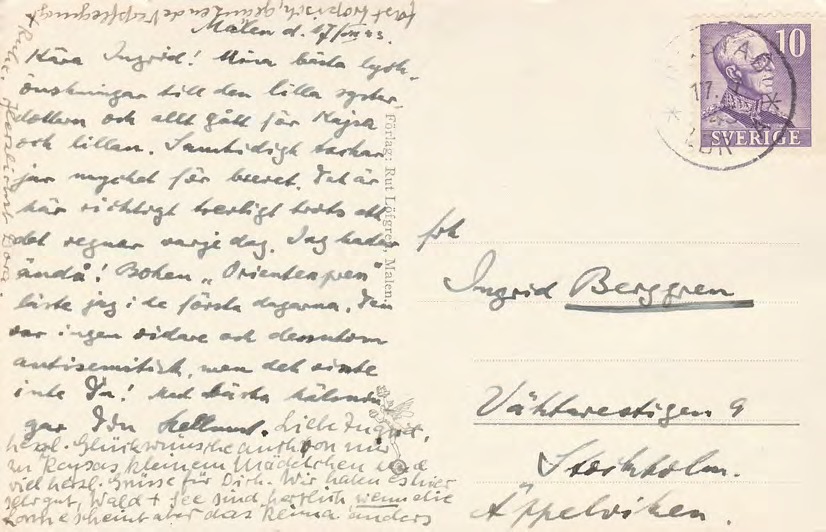 Mälen d. 17/VII 43.
Kära Ingrid! Mina bästa lyck-
önskningar till den lilla syster
dottern och allt gott för Kajsa
och lillan. Samtidigt tackar
jag mycket för brevet. Det är
här riktigt trevligt trots att
det regnar varje dag. Jag badar
ändå! Boken „Orientexpress"
läste jag i de första dagarna. Den
var ingen vidare och dessutom
antisemitisk, men det visste
inte Du! Med bästa hälsnin
gar Din Hellmut. Liebe Ingrid,
herzl. Glückwünsche auch von mir
zu Kaysas kleinem Mädchen und
viel herzl. Grüsse für Dich. Wir haben es hier
sehr gut, Wald + See sind herrlich wenn die
Sonne scheint aber das Klima anders
fast tropisch, glänzende Verpflegung +
Ruhe. Herzlichst Dora.
Förlag: Rut Löfgren, Malen.
10
SVERIGE
17.7
frk
Ingrid Berggren
9
Stockholm.
Äppelviken.